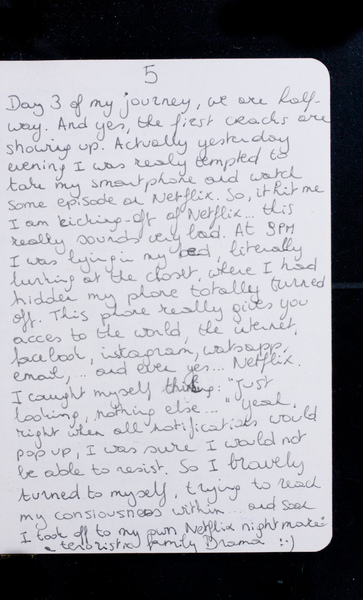 5
Day 3 of my journey, we are half-
way. And yes, the first cracks are
showing up. Actually yesterday
evening I was realy tempted to
take my smartphone and watch
some episode on Netflix. So, it hit me
I am kicking-off of Netflix... this
really sounds very bad. At 9PM
I was lying in my bed, literally
lurking at the closet, where I had
hidden my phone totally turned
off. This phone really gives you
acces to the world, the internet,
facebook, instagram, watsapp,
email, .. and even yes... Netflix.
I caught myself thinking: "Just
looking, nothing else..." Yeah,
right when all notifications would
pop up, I was sure I would not
be able to resist. So I bravely
turned to myself, trying to reach
my consiousness within ... and soon
I took off to my own Netflix nightmare:
a terorist family Drama :-)